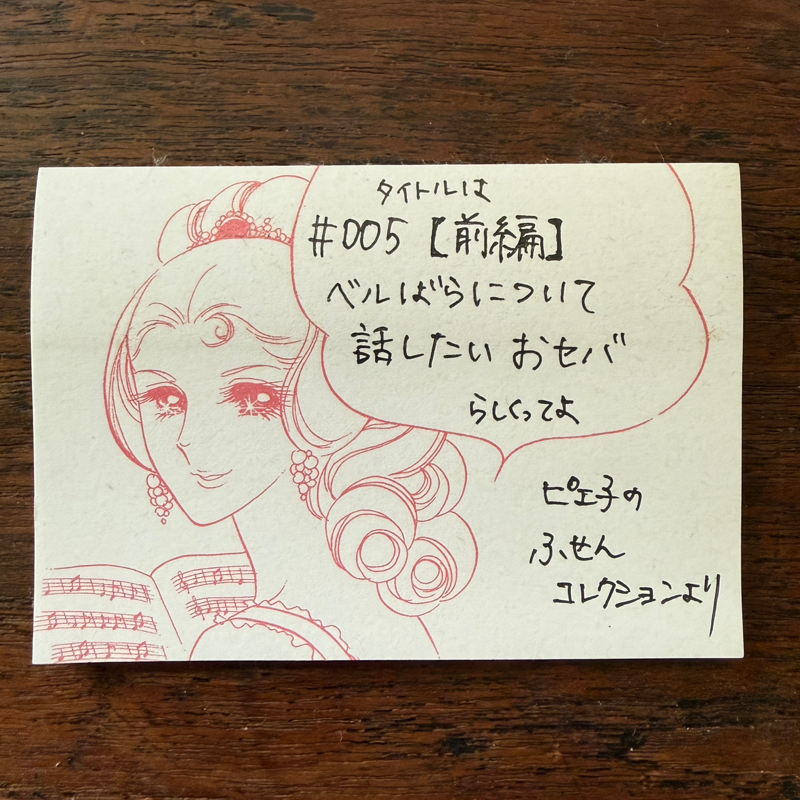 タイトルは
#005【前編】
ベルばらについて
話したい おセバ
らしくってよ
ピエ子の
ふせん
コレクションより